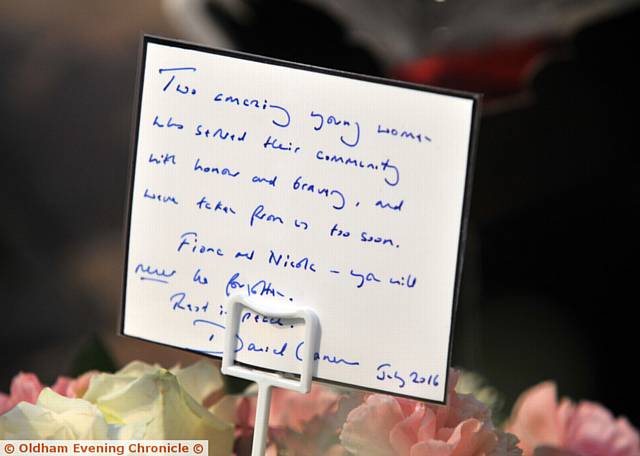 Two amazing young women
who served their community
with honour and bravery, and
were taken from us too soon.
Fiona and Nicola – you will
never be forgotten.
Rest in peace.
David Cameron
July 2016
© Oldham Evening Chronicle ©